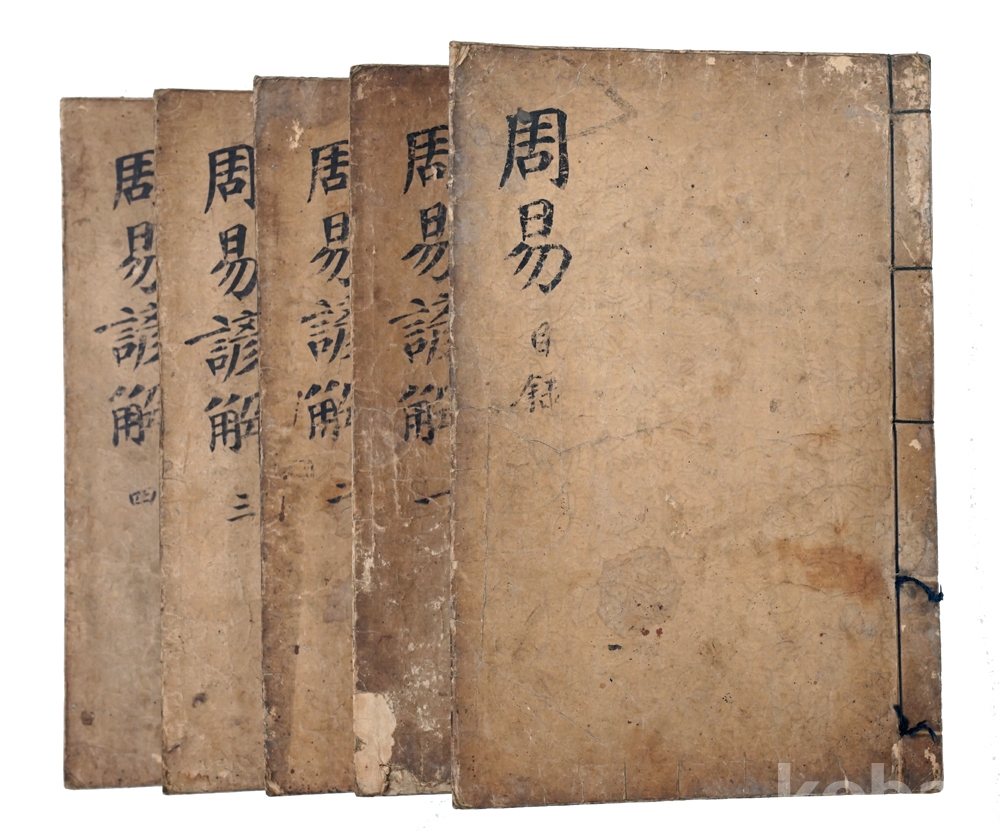 周易
目錄
周易諺解
一
周易諺解
二
周易諺解
三
周易諺解
四